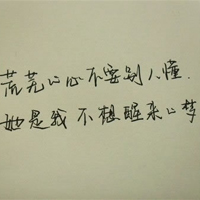 荒芜的心不要别人懂.
她是我不想醒来的梦